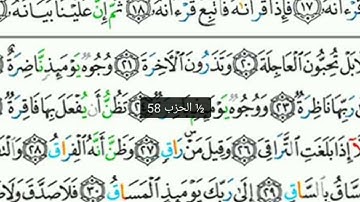 فَإِذَا قَرَأْنَٰهُ فَٱتَّبِعْ قُرْءَانَهُۥ ١٨ ثُمَّ إِنَّ عَلَيْنَا بَيَانَهُۥ
بَلْ تُحِبُّونَ ٱلْعَاجِلَةَ ٢٠ وَتَذَرُونَ ٱلْءَاخِرَةَ ٢١ وُجُوهٌ يَوْمَئِذٍ نَّاضِرَةٌ
رَبِّهَا نَاظِرَةٌ ٢٣ وَوُجُوهٌ تَظُنُّ أَن يُفْعَلَ بِهَا فَاقِرَةٌ
½ الحزب 58
إِذَا بَلَغَتِ ٱلتَّرَاقِىَ ٢٦ وَقِيلَ مَنْ رَاقٍ ٢٧ وَظَنَّ أَنَّهُ ٱلْفِرَاقُ ٢٨
بِٱلسَّاقِ ٢٩ إِلَىٰ رَبِّكَ يَوْمَئِذٍ ٱلْمَسَاقُ ٣٠ فَلَا صَدَّقَ وَلَا